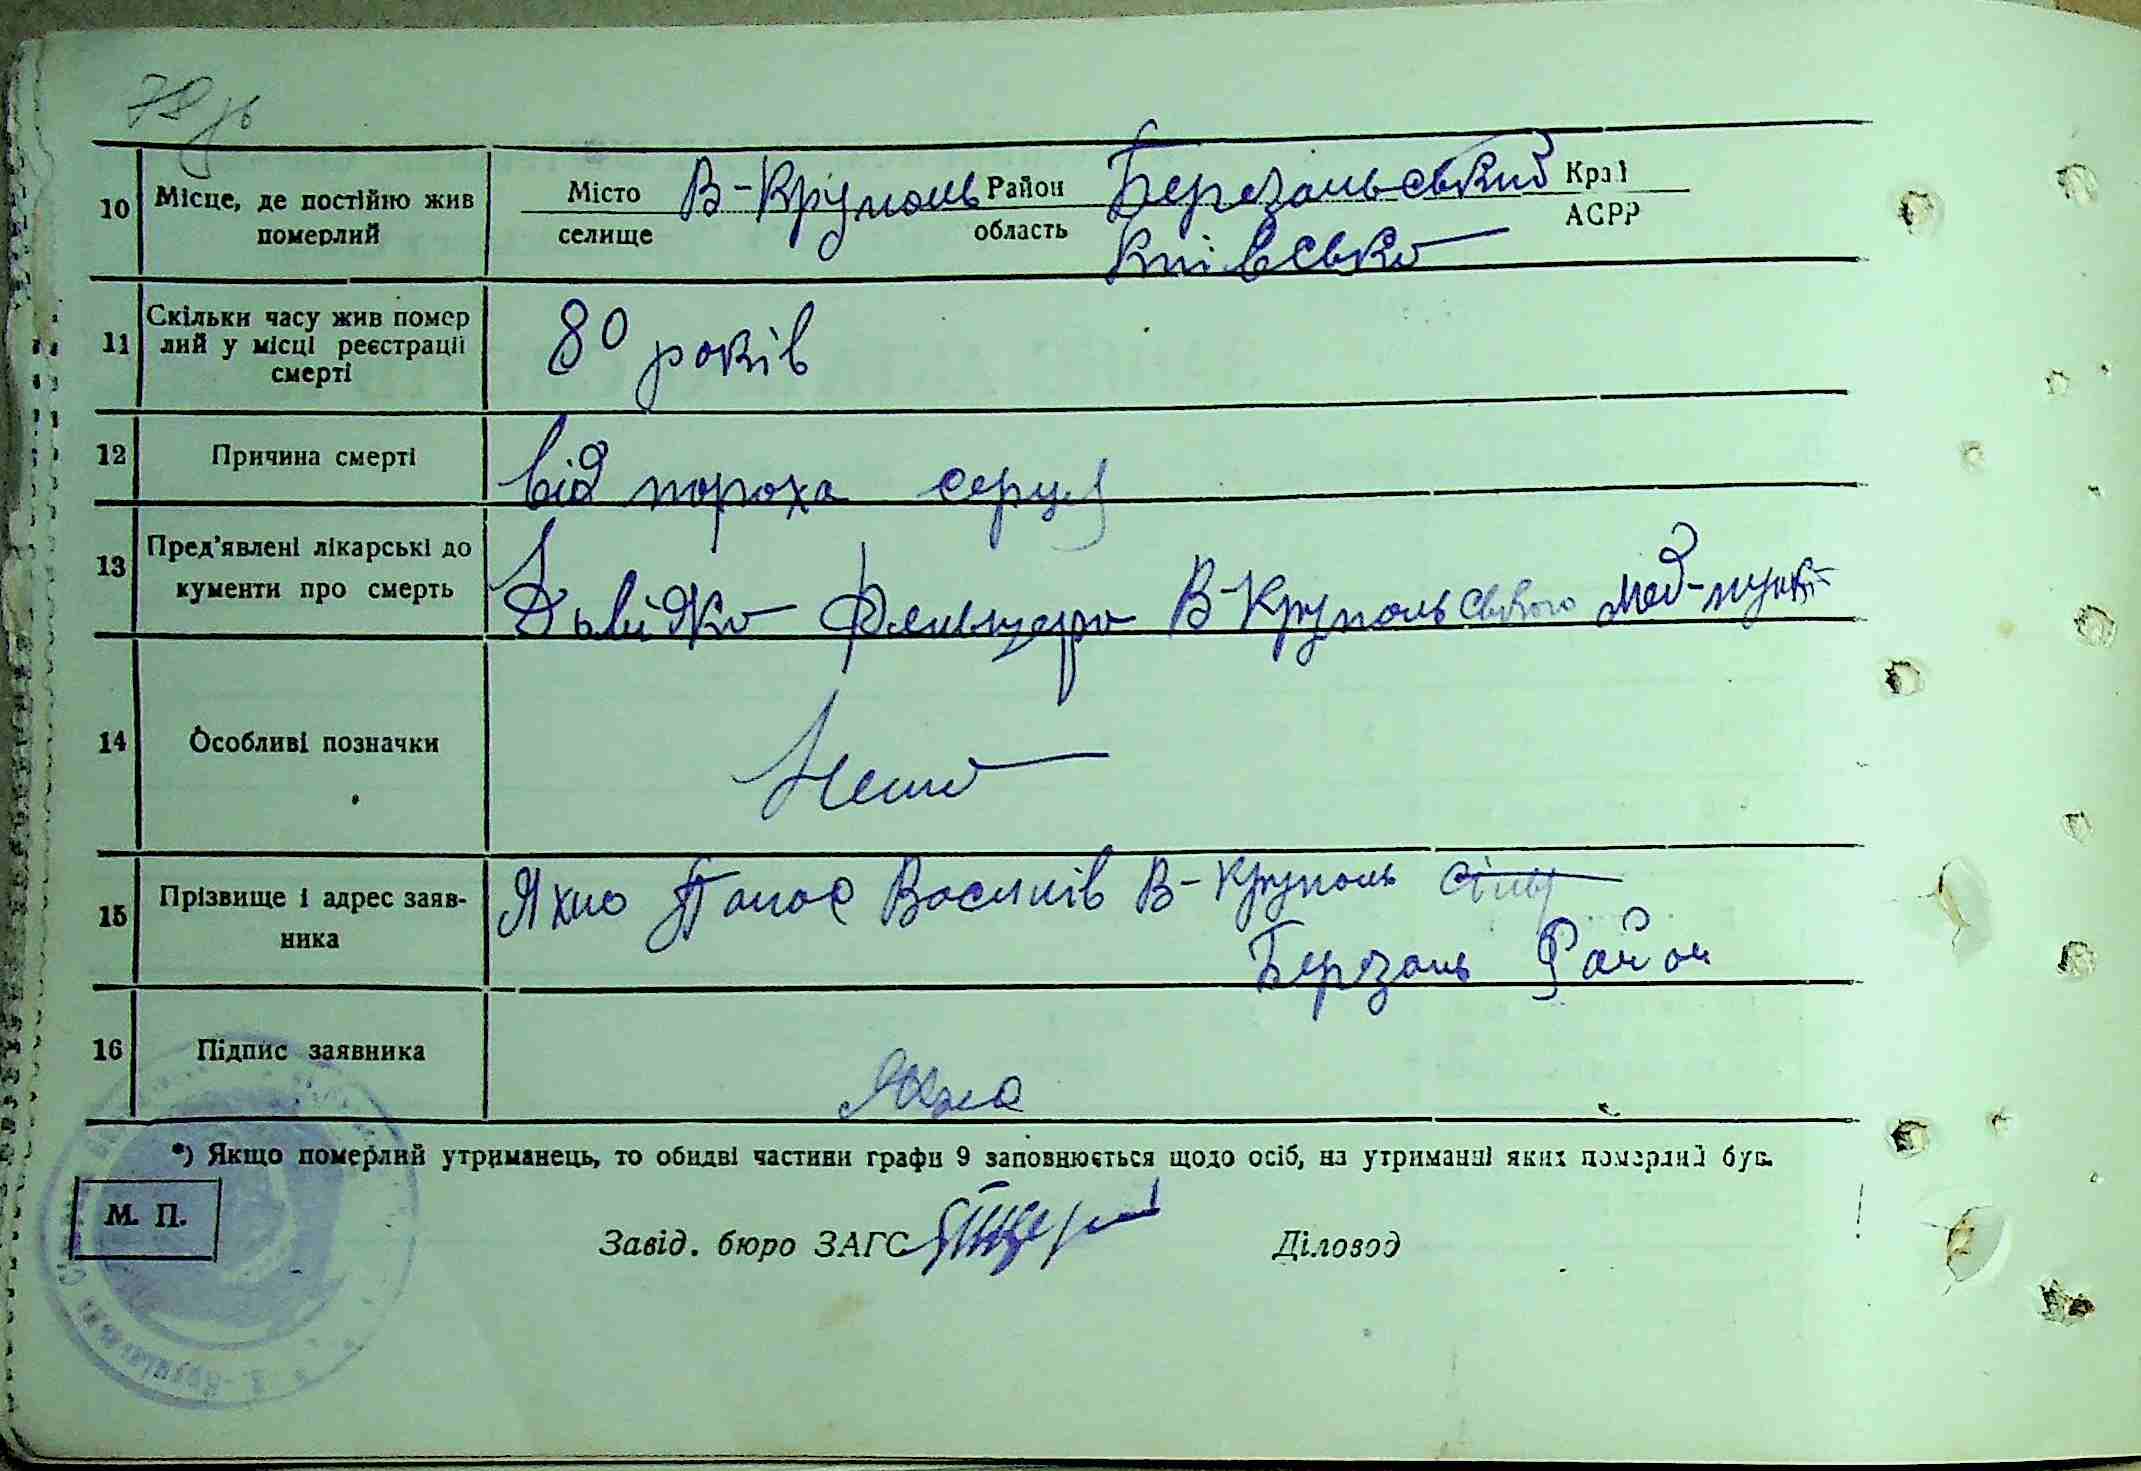 78
10 Місце, де постійно жив померлий
Місто селище В-Круполь Район область Березанський Київсько Край АСРР
11 Скільки часу жив помер
лий у місці реєстрації
смерті
80 років
12 Причина смерті
від пороха серця
13 Пред'явлені лікарські до
кументи про смерть
В-Крупольського мед-пункт
14 Особливі позначки
Нема
15 Прізвище і адрес заяв-
ника
Яхно Панас Василів В-Круполь
Березань Район
16 Підпис заявника
Яхно
*) Якщо померлий утриманець, то обидві частини графи 9 заповнюється щодо осіб, на утриманні яких померлий був.
М. П.
Завід. бюро ЗАГС Діловод